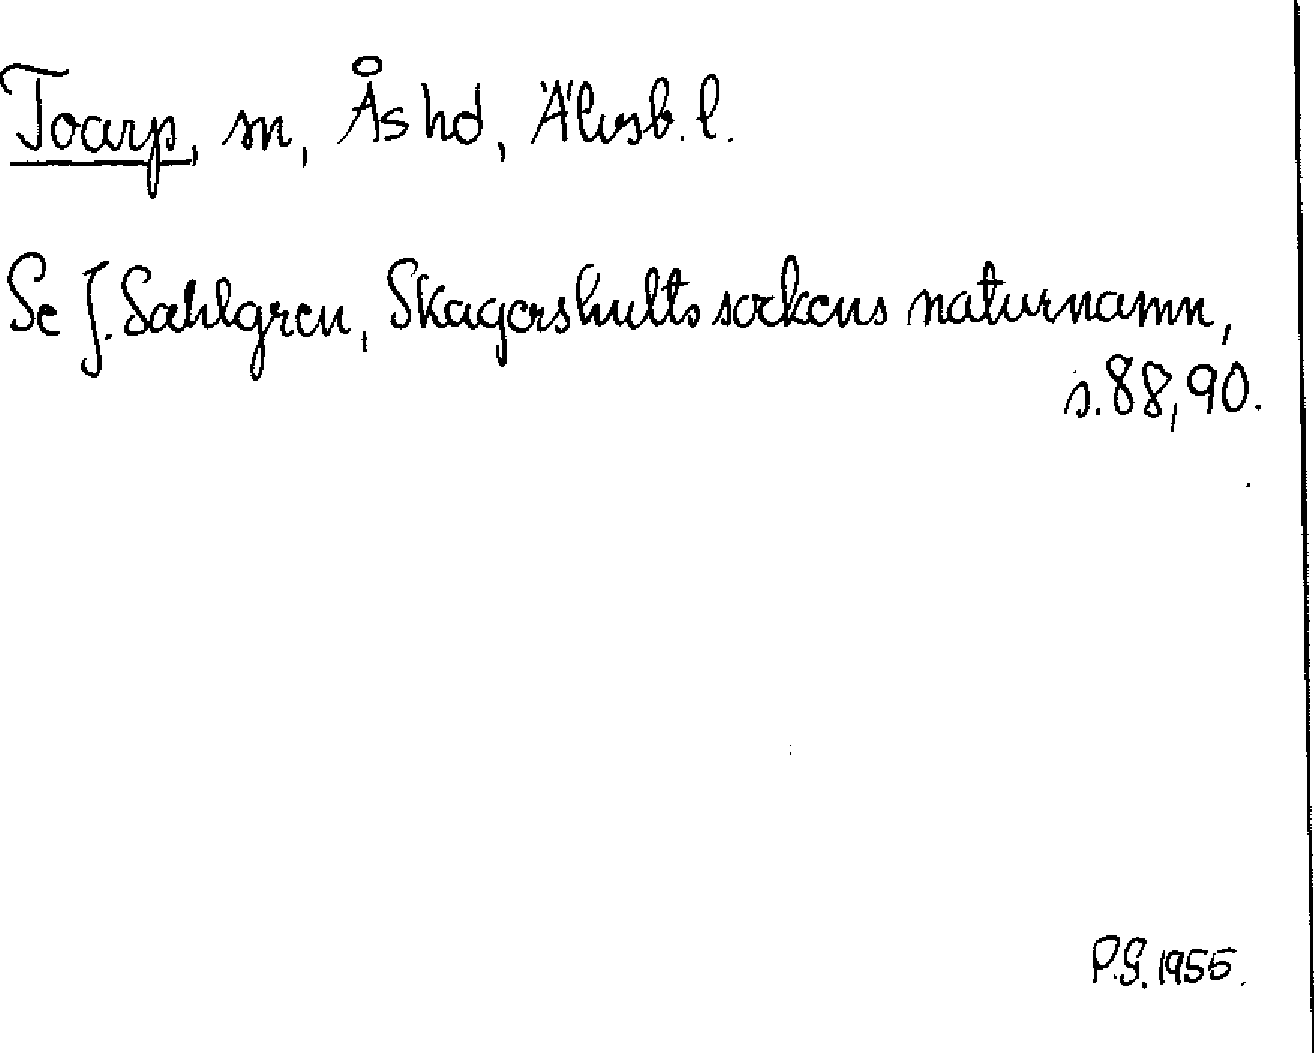 Toarp, sn, Ås hd, Älvsb. l.
Se J. Sahlgren, Skagershults sockens naturnamn,
s. 88, 90.
P.G. 1955.